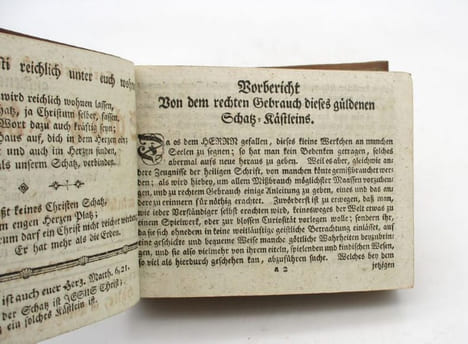 sti reichlich unter euch wohn
wird reichlich wohnen lassen,
tz, ja Christum selber, fassen,
Wort dazu auch kräftig seyn;
Haus auf, dich in dem Herzen ein;
und auch in Herzen findet,
als unserm Schatz, verbindet.
ßt keines Christen Schatz,
m engen Herzen Platz;
rum darf ein Christ nicht reicher werden
Er hat mehr als die Erden.
ist auch euer Herz. Matth. 6, 21.
der Schatz ist JESUS Christ;
ein solches Kästlein ist.
Vorbericht
Von dem rechten Gebrauch dieses güldenen
Schatz-Kästleins.
Da es dem HERRN gefallen, dieses kleine Werkchen an manchen
Seelen zu segnen; so hat man kein Bedenken getragen, solches
abermal aufs neue heraus zu geben. Weil es aber, gleichwie an-
dere Zeugnisse der heiligen Schrift, von manchen könte gemißbrauchet wer-
den; als wird hiebey, um allem Mißbrauch möglichster Maassen vorzubeu-
gen, zu rechtem Gebrauch einige Anleitung zu geben, eines und das an-
dere zu erinnern für nöthig erachtet. Zuvörderst ist zu erwegen, daß man,
wie ieder Verständiger selbst erachten wird, keinesweges der Welt etwas zu
einem Spielwerk, oder zur blossen Curiosität vorlegen wolle; sondern ihr,
da sie sich ohndem in keine weitläuftige geistliche Betrachtung einlässet, auf
eine geschickte und bequeme Weise manche göttliche Wahrheiten beyzubrin-
gen, und sie also vielmehr von ihrem eiteln, spielenden und kindischen Wesen,
so viel als hierdurch geschehen kan, abzuführen suche. Welches bey dem
a 2
jetzigen